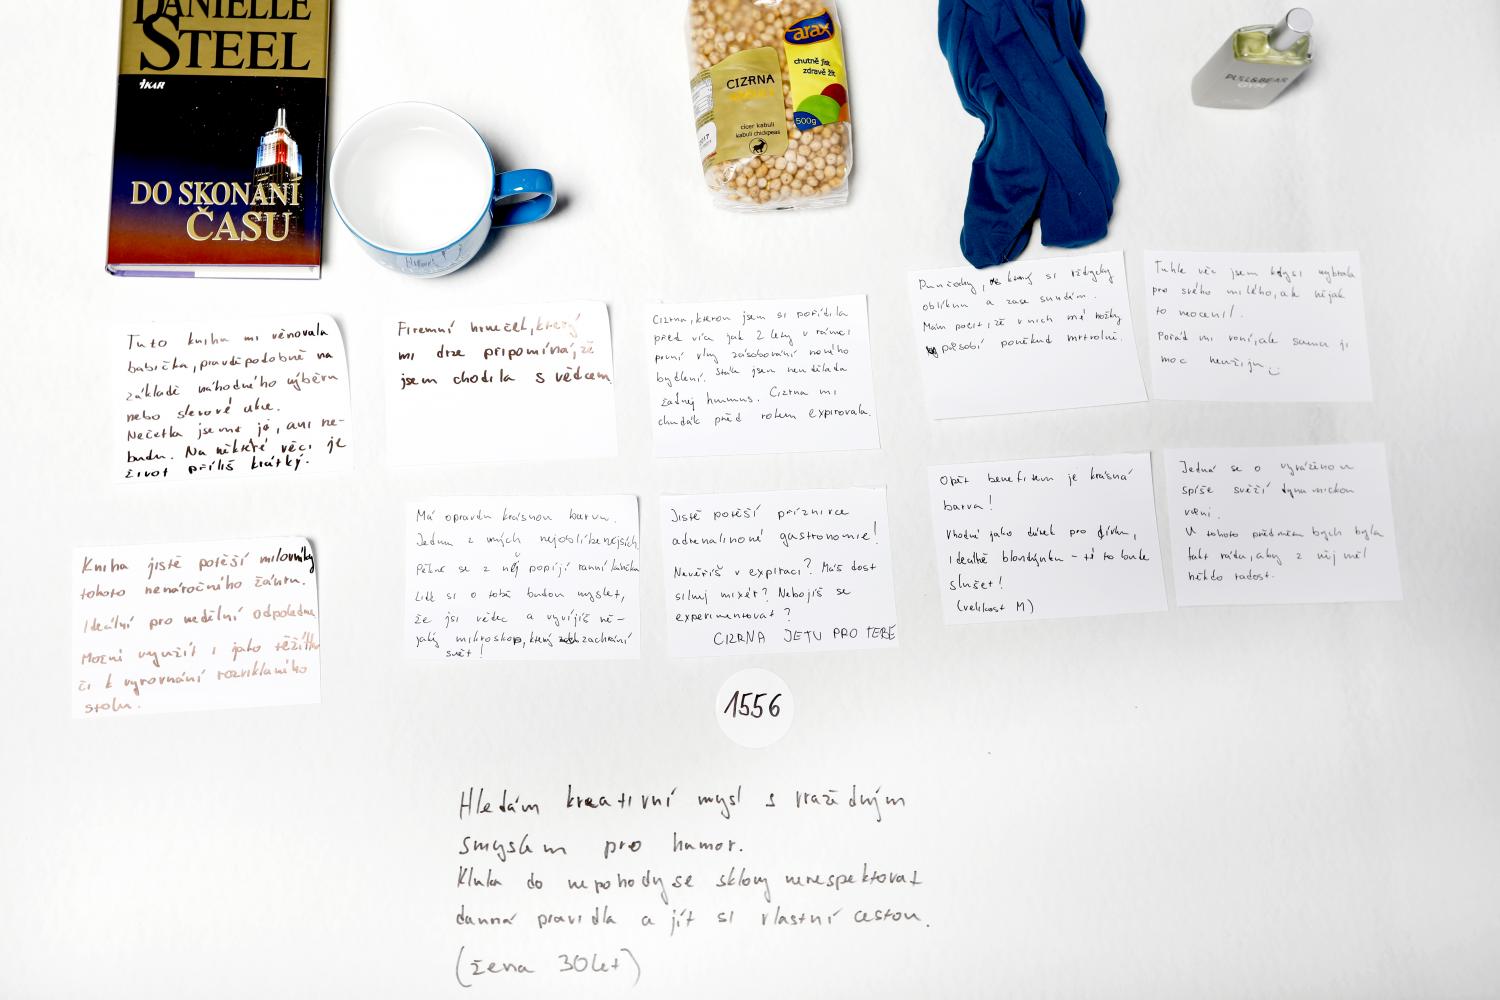 DANIELLE
STEEL
IKAR
DO SKONÁNÍ
ČASU
arax
chutně jíst
zdravě žít
CIZRNA
500g
cícer kabuli
kabuli chickpeas
PULL&BEAR
GYM
Tuto knihu mi věnovala
babička, pravděpodobně na
základě náhodného výběru
nebo slevové akce.
Nečetla jsem já, ani ne-
budu. Na některé věci je
život příliš krátký.
Firemní hrneček, který
mi dne připomíná, že
jsem chodila s vědcem
Cizrna, kterou jsem si pořídila
před více jak 2 lety v rámci
první vlny zásobování nového
bydlení. Stále jsem neudělala
žádnej hummus. Cizrna mi
chudák před rokem expirovala.
Punčochy, které si vždycky
obléknu a zase sundám.
Mám pocit, že v nich mé nožky
působí poněkud mrtvolně.
Tuhle věc jsem kdysi vybrala
pro svého milého, ale nějak
to neocenil.
Pořád mi voní, ale sama ji
moc neužiju
Kniha jistě potěší milovníky
tohoto nenáročného žánru.
Ideální pro nedělní odpoledne
Možné využít i jako těžítko
či k vyrovnání rozviklaného
stolu.
Má opravdu krásnou barvu.
Jedna z mých nejoblíbenějších.
Pěkně se z něj popíjí ranní
Lidé si o tobě budou myslet,
že jsi vědec a vyvíjíš ně-
jaký mikroskop, který zachrání
svět!
Jistě potěší příznivce
adrenalinové gastronomie!
Nevěříš v expiraci? Máš dost
silnej mixér? Nebojíš se
experimentovat?
CIZRNA JE TU PRO TEBE
Opět benefitem je krásná
barva!
Vhodné jako dárek pro dívku,
ideálně blondýnku - té to bude
slušet!
(velikost M)
Jedná se o vyváženou
spíše svěží dynamickou
vůni.
U tohoto předmětu bych byla
fakt ráda, aby z něj měl
někdo radost.
1556
Hledám kreativní mysl s vražedným
smyslem pro humor.
Kluka do nepohody se sklony nerespektovat
daná pravidla a jít si vlastní cestou.
(žena 30 let)